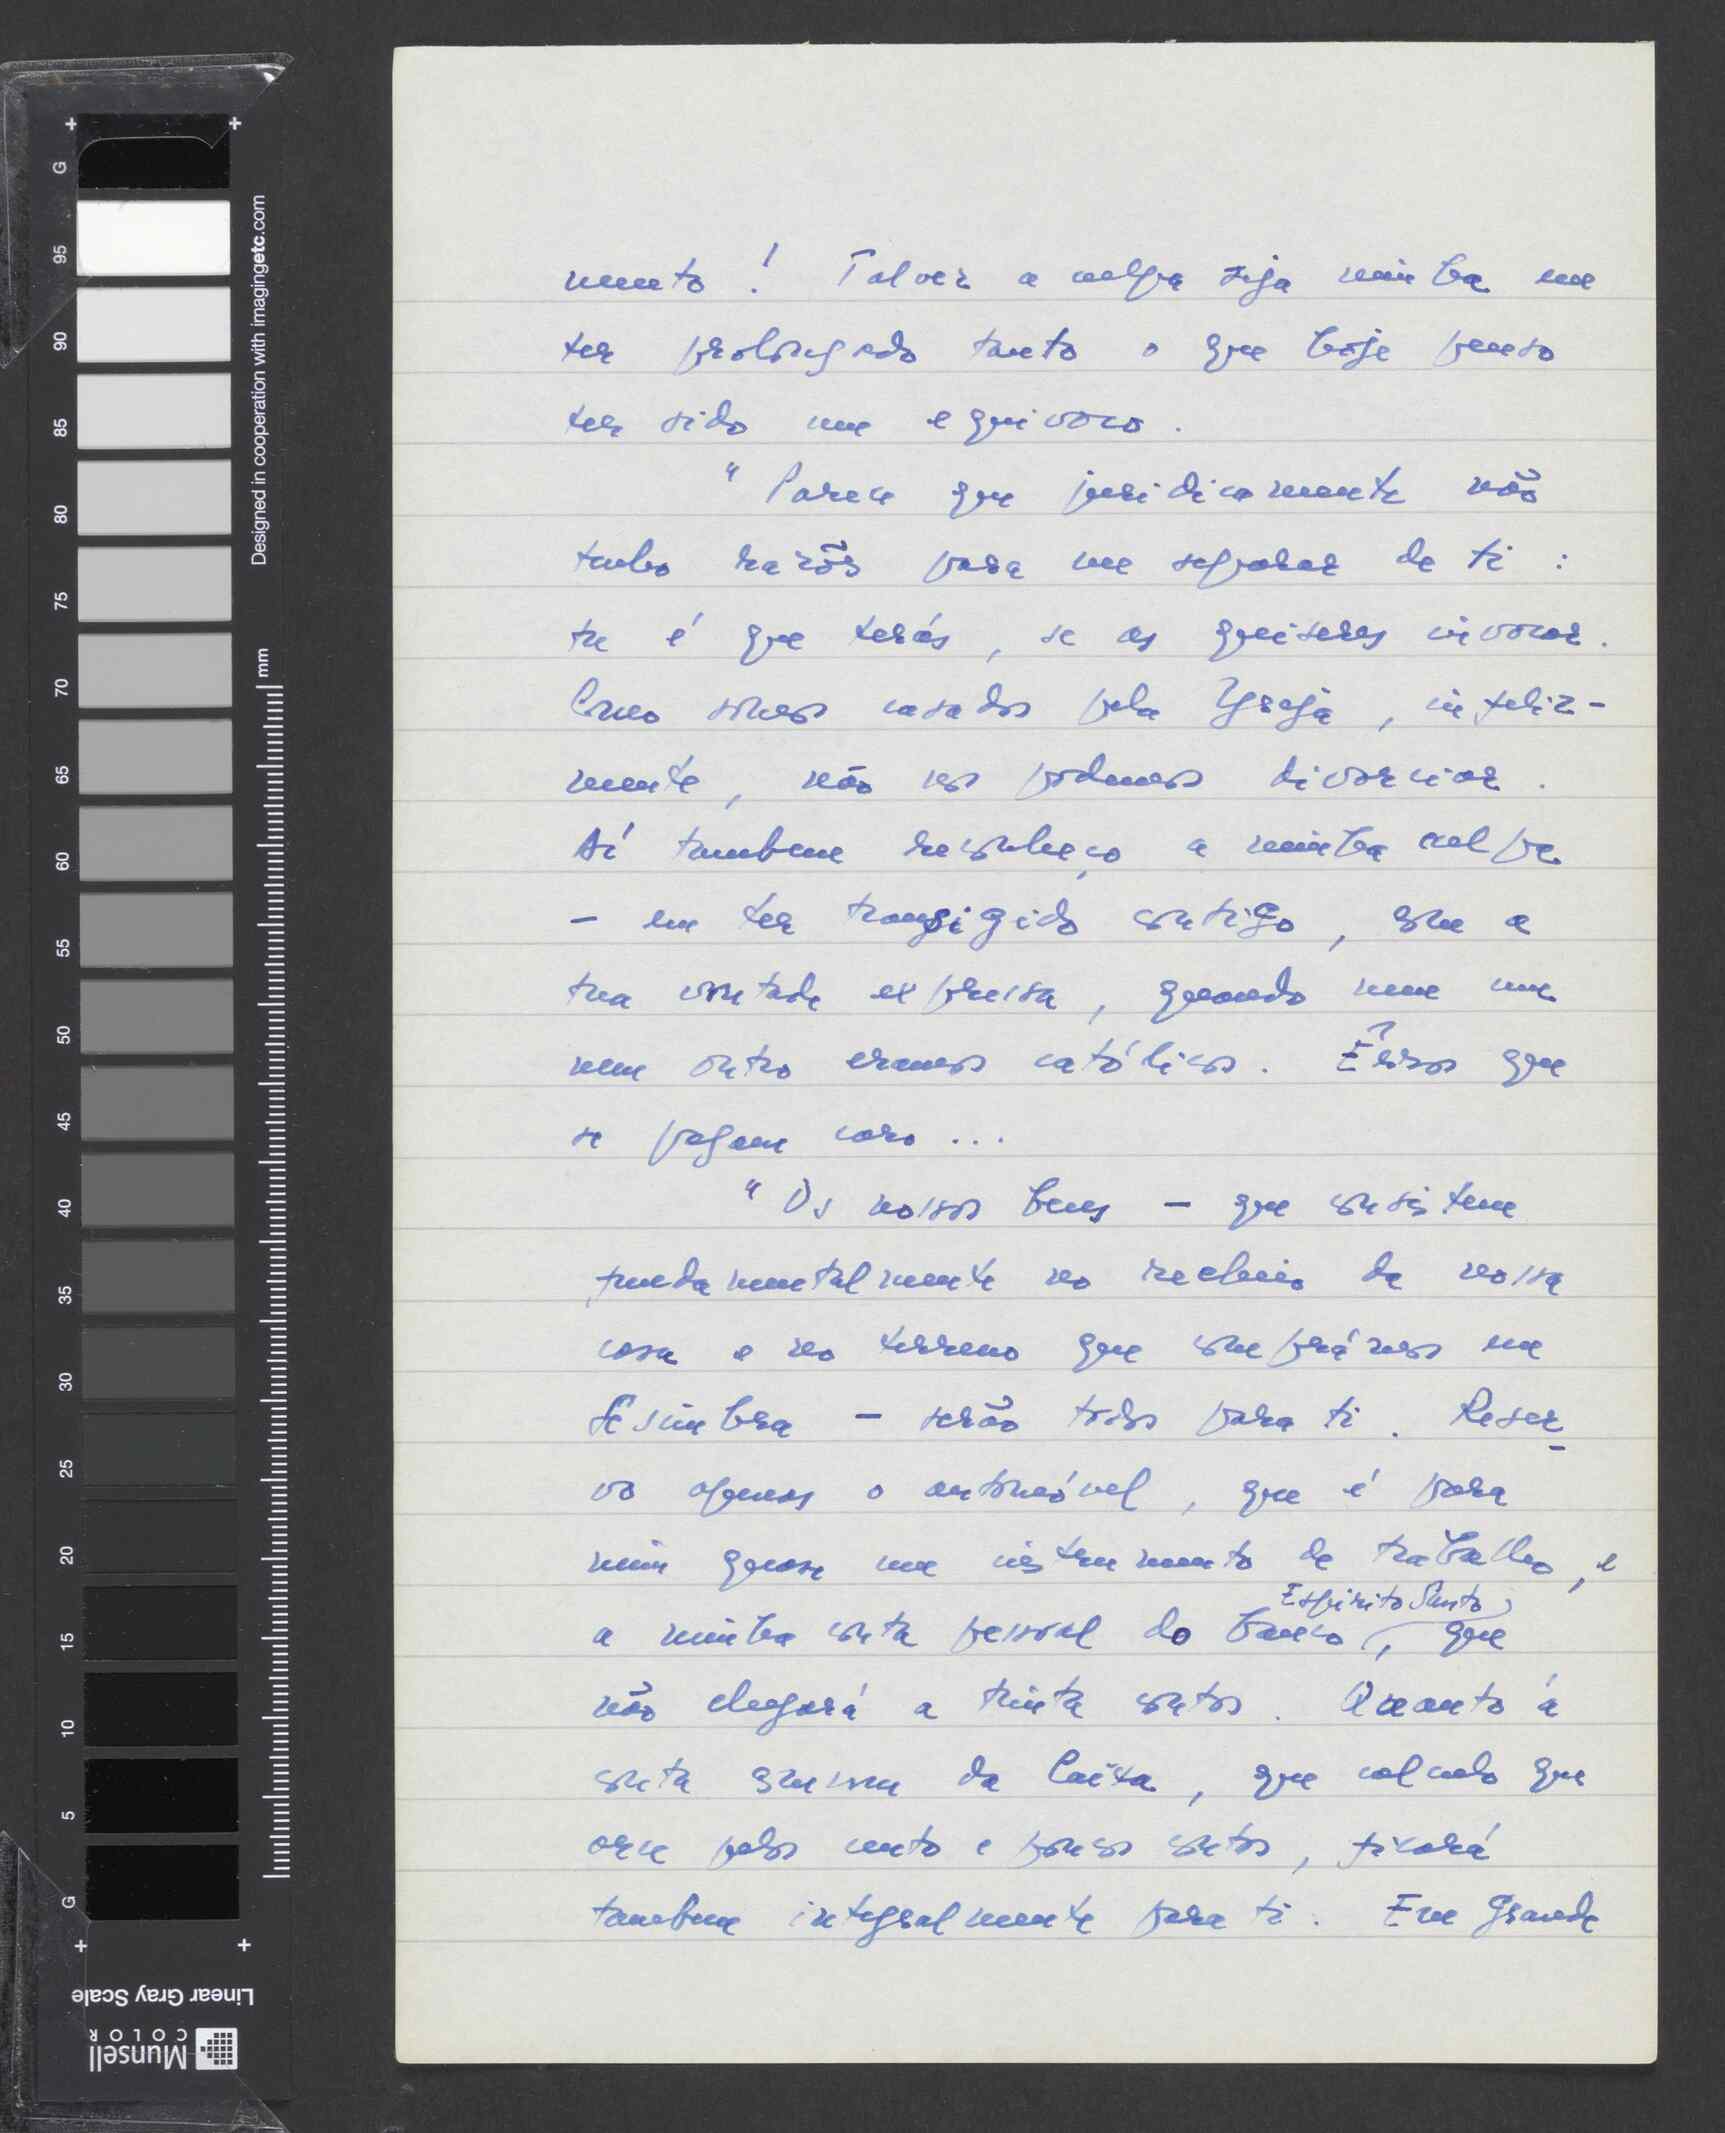 mento! Talvez a culpa seja minha em
ter prolongado tanto o que hoje penso
ter sido um equivoco.
"Parece que juridicamente não
tenho razões para me separar de ti:
tu é que terás, se as quiseres invocar.
Como somos casados pela Igreja, infeliz-
mente, não nos podemos divorciar.
Aí tambem reconheço a minha culpa
- em ter transigido contigo, com a
tua vontade expressa, quando nem um
nem outro eramos católicos. Erros que
se pagam caro...
"Os nossos bens - que consistem
fundamentalmente no recheio da nossa
casa e no terreno que comprámos em
Sesimbra - serão todos para ti. Reser-
vo apenas o automóvel, que é para
mim quase um instrumento de trabalho, e
Espirito Santo
a minha conta pessoal do banco, que
não chegará a trinta contos. Quanto à
conta comum da Caixa, que calculo que
orce pelos cento e poucos contos, ficará
tambem integralmente para ti. Em grande
G
95
90
85
80
75
70
65
60
55
50
45
40
35
30
25
20
15
10
5
G
Designed in cooperation with imagingetc.com
mm
Linear Gray Scale
Munsell
COLOR